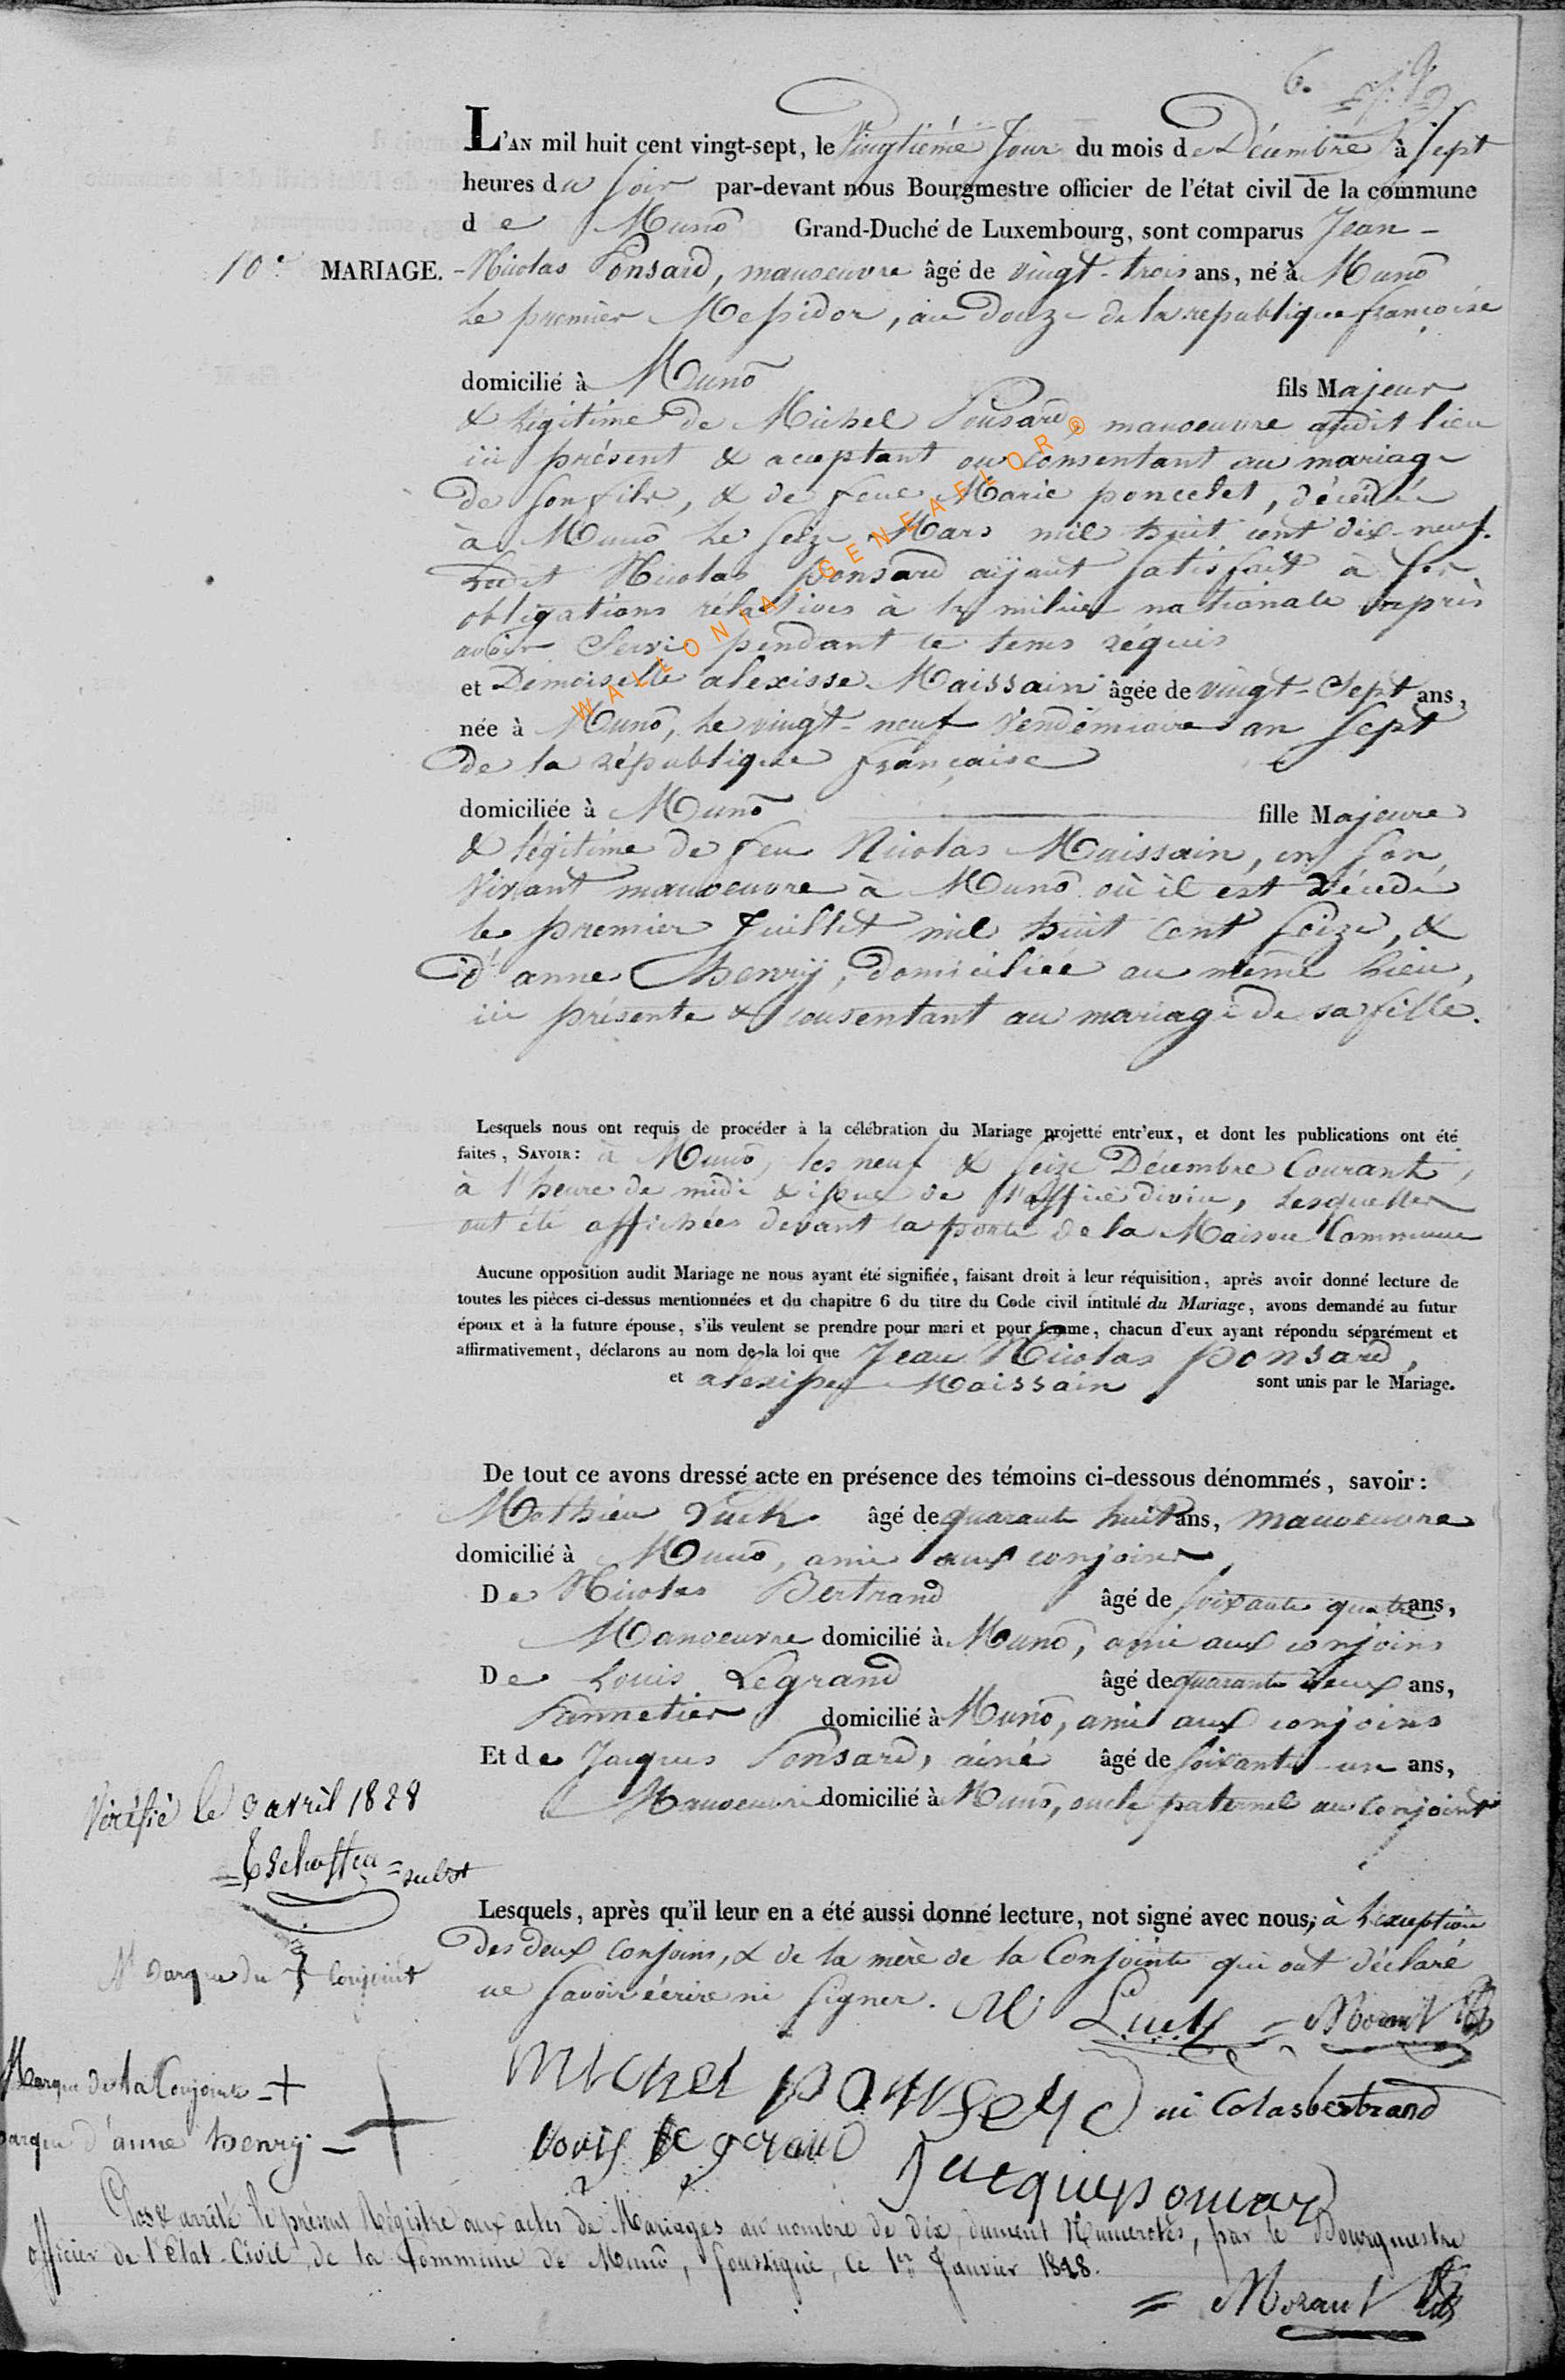 6.
L'AN mil huit cent vingt-sept, le Vingtiéme Jour du mois de Décembre à Sept
heures du soir par-devant nous Bourgmestre officier de l'état civil de la commune
de Munô Grand-Duché de Luxembourg, sont comparus Jean-
10e MARIAGE. -Nicolas Ponsard, manoeuvre âgé de vingt-trois ans, né à Munô
le premier Messidor, an douze de la republique françoise
domicilié à Munô fils Majeur
& légitime de Michel Ponsard, manoeuvre audit lieu
ici présent & acceptant ou consentant au mariage
de son fils, & de feue Marie poncelet, décédée
à Munô le seize Mars mil huit cent dix-neuf.
Ledit Nicolas Ponsard aÿant satisfait à ses
obligations rélatives à la milice nationale après
avoir servi pendant le tems réquis
et Demoiselle alexisse Maissain âgée de vingt-sept ans,
née à Munô, le vingt-neuf Vendémiaire an sept
de la république française
domiciliée à Munô fille Majeure
& légitime de feu Nicolas Maissain, en son
vivant manoeuvre à Munô où il est décédé
le premier Juillet mil huit cent seize, &
d'anne henrÿ, domiciliée au même lieu,
ici présente & consentant au mariage de sa fille.
Lesquels nous ont requis de procéder à la célébration du Mariage projetté entr'eux, et dont les publications ont été
faites, SAVOIR: à Munô, les neuf & seize Décembre Courant,
à l'heure de midi & issue de l'office divin, lesquelles
ont été affichées devant la porte de la Maison Commune
Aucune opposition audit Mariage ne nous ayant été signifiée, faisant droit à leur réquisition, après avoir donné lecture de
toutes les pièces ci-dessus mentionnées et du chapitre 6 du titre du Code civil intitulé du Mariage, avons demandé au futur
époux et à la future épouse, s'ils veulent se prendre pour mari et pour femme, chacun d'eux ayant répondu séparément et
affirmativement, déclarons au nom de la loi que Jean Nicolas Ponsard,
et alexisse Maissain sont unis par le Mariage.
De tout ce avons dressé acte en présence des témoins ci-dessous dénommés, savoir:
Mathieu âgé de quarante huit ans, manoeuvre
domicilié à Munô, ami aux conjoins,
De Nicolas Bertrand âgé de soixante quatre ans,
Manoeuvre domicilié à Munô, ami aux conjoins
De Louis Legrand âgé de quarante deux ans,
domicilié à Munô, ami aux conjoins
Et de Jacques Ponsard, ainé âgé de soixante-un ans,
Manoeuvre domicilié à Munô, oncle paternel au conjoint
Vérifié le 3 avril 1828
Lesquels, après qu'il leur en a été aussi donné lecture, not signé avec nous, à l'exception
des deux conjoins, & de la mère de la Conjointe qui ont déclaré
ne savoir écrire ni signer.
Marque du + Conjoint
M Luck = Morant
Michel
ni Colas bertrand
Marque de la Conjointe +
marque d'anne henry - +
Louis le grand
Jacque ponsard
Clos & arrêté le présent Régistre aux actes de Mariages au nombre de dix, dument Numerotés, par le Bourgmestre
officier de l'Etat-Civil de la Commune de Munô, soussigné, le 1er Janvier 1828.
= Morant
WALLONIA-GENEAFLOR®